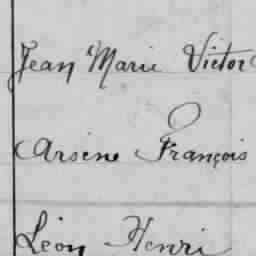 Jean Marie Victor
Arsène François
Léon Henri